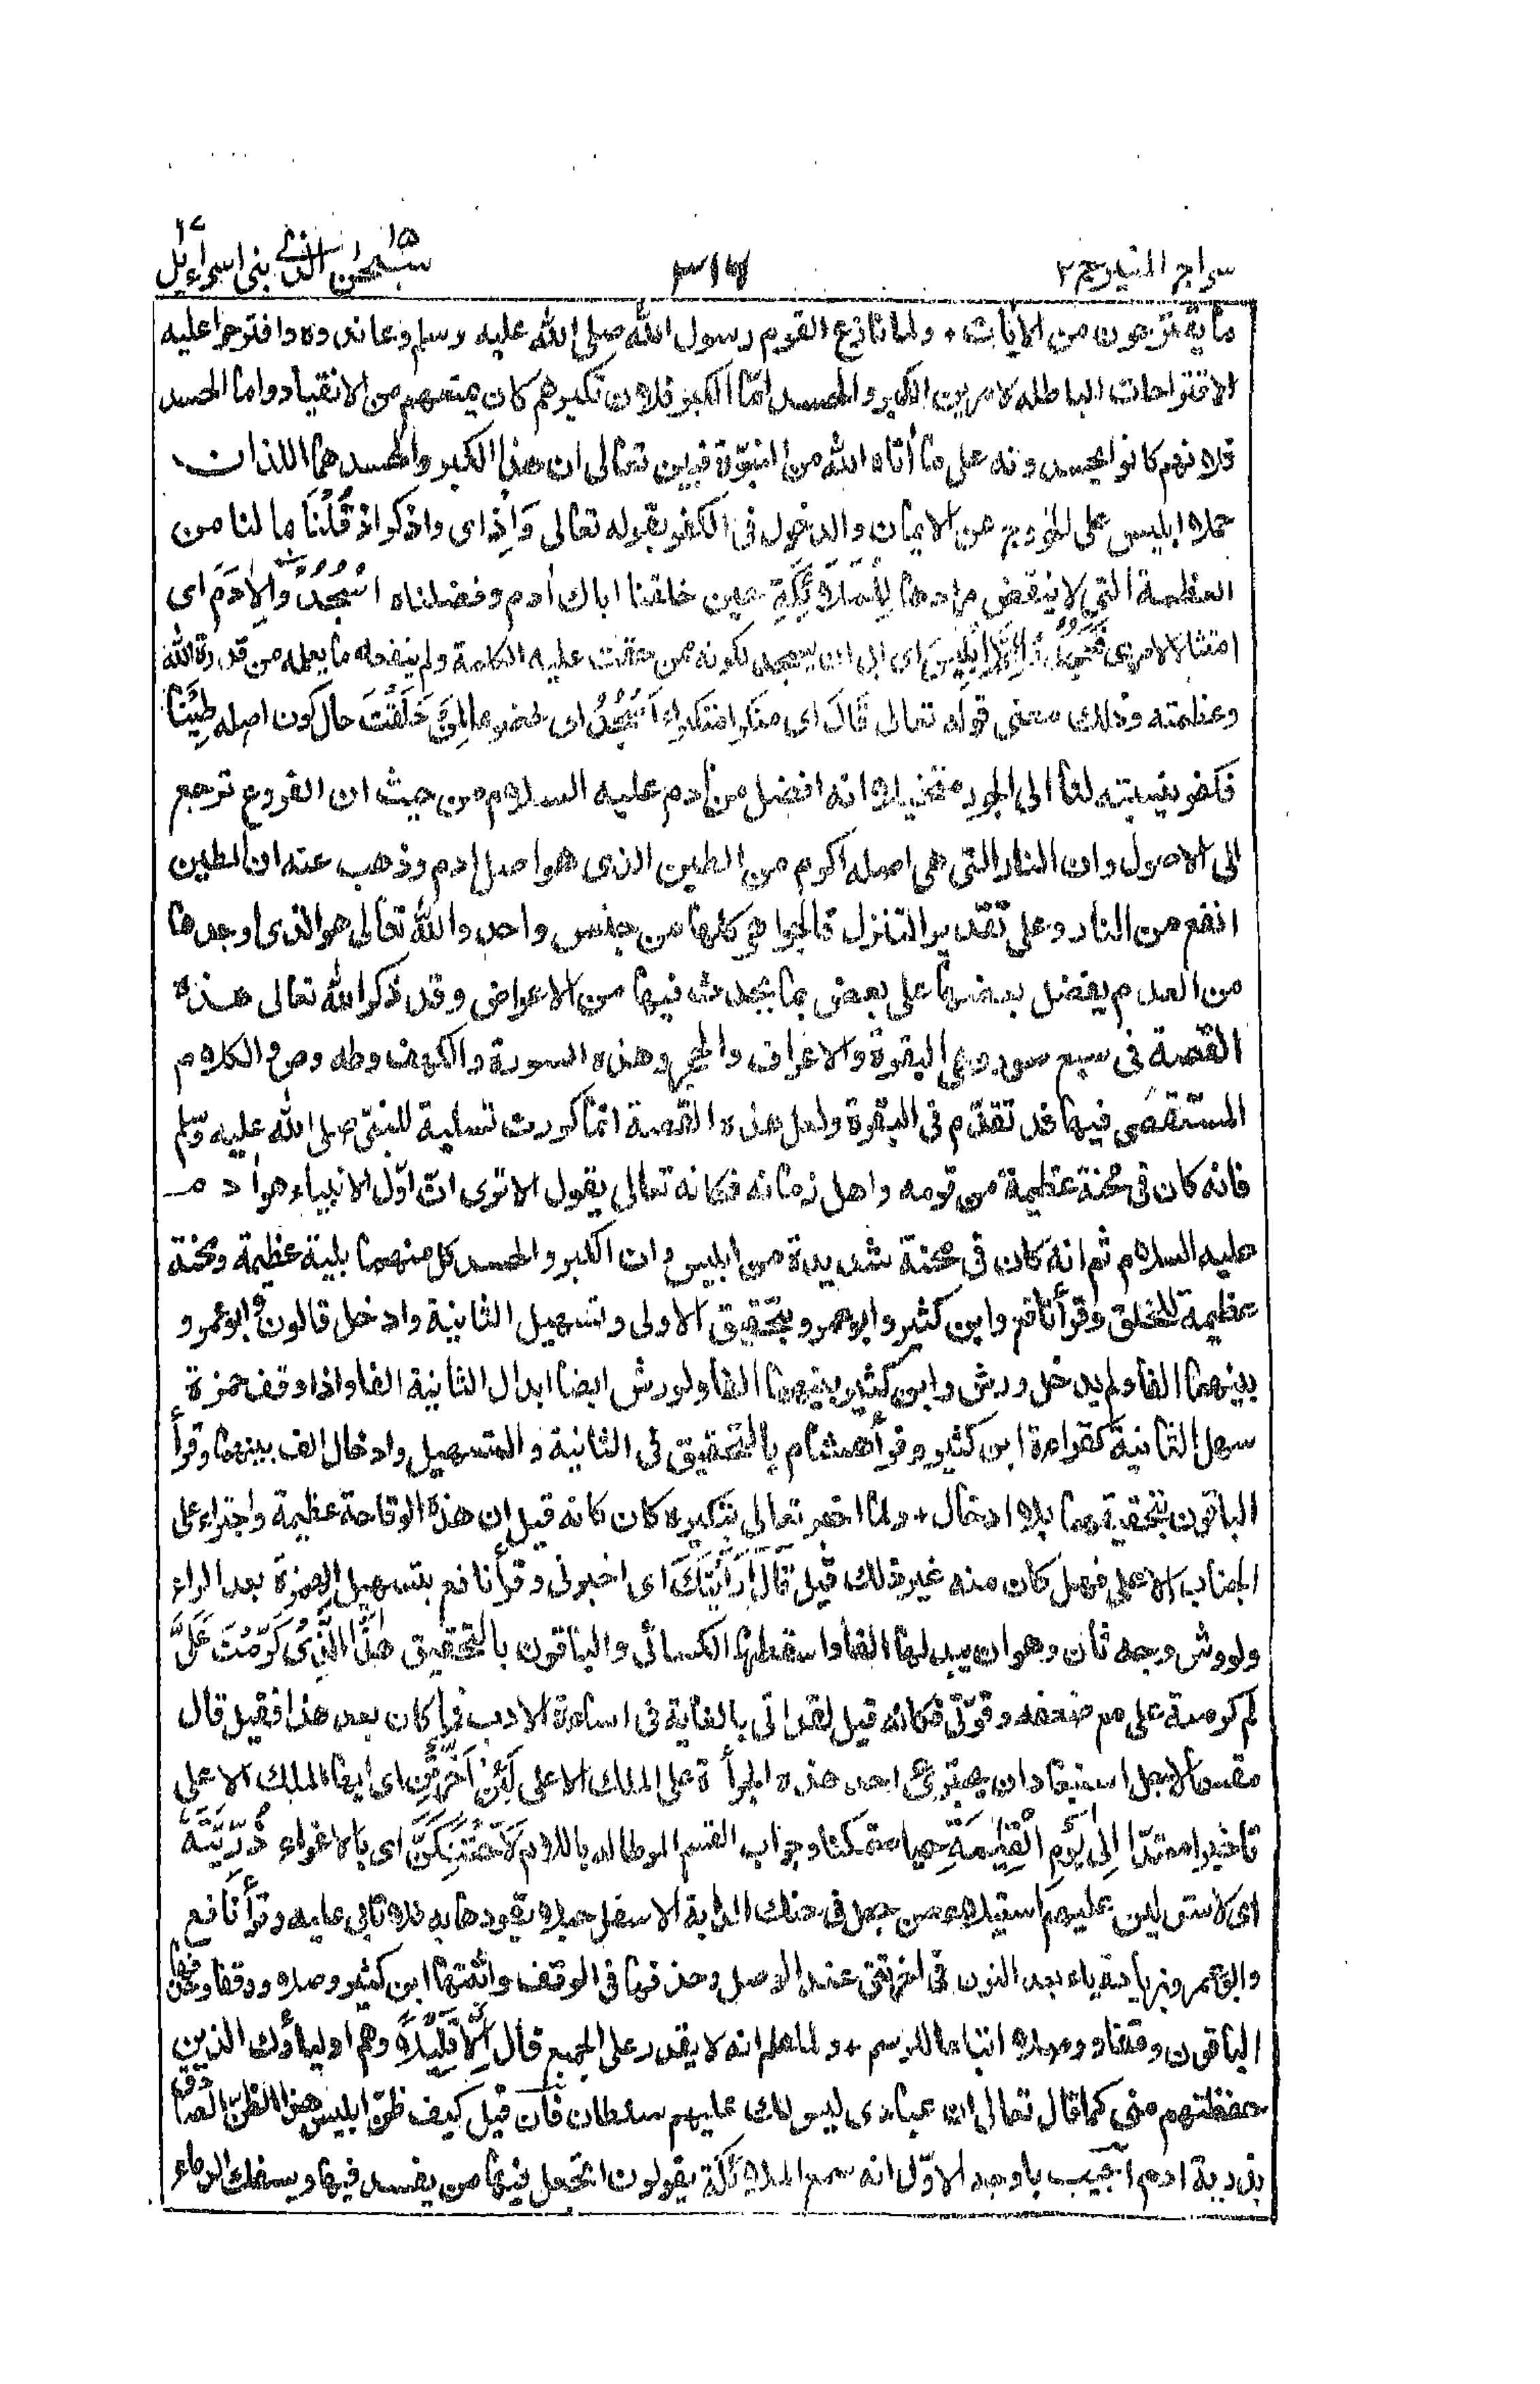 سراج المنيرج٢
٣١٧
سبحٰن الذی ١٥ بنی اسراءیل ١٧
ما يقترحون من الآيات + ولما نازع القوم رسول الله صلى الله عليه وسلم وعاندوه واقترحوا عليه
الاقتراحات الباطلة لامرين الكبر والحسد امّا الكبر فلان تكبرهم كان يمنعهم من الانقياد واما الحسد
فلانهم كانوا يحسدونه على ما أتاه الله من النبوّة فبين تعالى ان هذا الكبر والحسد هما اللذان
حملا ابليس على الخروج عن الايمان والدخول فى الكفر بقوله تعالى وَاِذْ اى واذكر اذ قُلْنَا ما لنا من
العظمة التي لا ينقض مرادها لِلْمَلٰٓئِكَةِ حين خلقنا اباك أدم وفضلناه اسْجُدُوْا لِاٰدَمَ اى
امتثالا لامرى فَسَجَدُوْٓا اِلَّآ اِبْلِيْسَ اى ابى ان يسجد لكونه ممن حقت عليه الكلمة ولم ينفعه ما يعلمه من قدرة الله
وعظمته وذلك معنى قوله تعالى قَالَ اى منكرا متكبرا ءَاَسْجُدُ اى خضوعا لِمَنْ خَلَقْتَ حال كون اصله طِيْنًا
فكفر بنسبته لنا الى الجور متخيلا انه افضل من أدم عليه السلام من حيث ان الفروع ترجع
الى الاصول وان النار التى هى اصله اكرم من الطين الذى هو اصل ادم وذهب عنه ان الطين
انفع من النار وعلى تقدير التنزل فالجواهر كلها من جنس واحد والله تعالى هو الذى اوجدها
من العدم يفضل بعضها على بعض بما يحدث فيها من الاعراض وقد ذكر الله تعالى هذه
القصة فى سبع سور وهى البقرة والاعراف والحجر وهذه السورة والكهف وطه وص والكلام
المستقصى فيها قد تقدّم فى البقرة ولعل هذه القصة انما كررت تسلية للنبىّ صلى الله عليه وسلم
فانه كان فى محنة عظيمة من قومه واهل زمانه فكانه تعالى يقول الا ترى انّ اوّل الانبياء هو ادم
عليه السلام ثم انه كان فى محنة شديدة من ابليس وان الكبر والحسد كل منهما بلية عظيمة ومحنة
عظيمة للخلق وقرأ نافع وابن كثير وابو عمرو بتحقيق الاولى وتسهيل الثانية وادخل قالون وابو عمرو
بينهما الفا ولم يدخل ورش وابن كثير بينهما الفا ولورش ايضا ابدال الثانية الفا واذا وقف حمزة
سهل الثانية كقراءة ابن كثير وقرأ هشام بالتحقيق فى الثانية والتسهيل وادخال الف بينهما وقرأ
الباقون بتحقيقهما بلا ادخال + ولما اخبر تعالى بتكبره كان كانه قيل ان هذه الوقاحة عظيمة واجتراء على
الجناب الاعلى فهل كان منه غير ذلك قيل قَالَ اَرَاَيْتَكَ اى اخبرنى وقرأ نافع بتسهيل الهمزة بعد الراء
ولورش وجه ثان وهو ان يبدلها الفا واسقطها الكسائى والباقون بالتحقيق هٰذَا الَّذِىْ كَرَّمْتَ عَلَىَّ
لم كرمته على مع ضعفه وقوّتى فكانه قيل لقد اتى بالغاية فى اساءة الادب فما كان بعد هذا فقيل قال
مقسما لاجل استبعاد ان يجترئ احد هذه الجرأة على الملك الاعلى لَئِنْ اَخَّرْتَنِ اى ايها الملك الاعلى
تاخيرا ممتدّا اِلٰى يَوْمِ الْقِيٰمَةِ حيا متمكنا وجواب القسم الموطا له باللام لَاَحْتَنِكَنَّ اى بالاغواء ذُرِّيَّتَهٗٓ
اى لاستولين عليهم استيلاء من جعل فى حنك الدابة الاسفل حبلا يقودها به فلا تابى عليه وقرأ نافع
وابو عمرو بزيادة ياء بعد النون فى اخرتنى عند الوصل وحذفها فى الوقف واثبتها ابن كثير وصلا ووقفا وحذفها
الباقون وقفا ووصلا اتباعا للرسم + ولما علم انه لا يقدر على الجميع قال اِلَّا قَلِيْلًا وهم اولياؤك الذين
حفظتهم منى كما قال تعالى ان عبادى ليس لك عليهم سلطان فان قيل كيف ظنّ ابليس هذا الظنّ الصادق
بذرية ادم اجيب باوجه الاوّل انه سمع الملائكة يقولون اتجعل فيها من يفسد فيها ويسفك الدماء